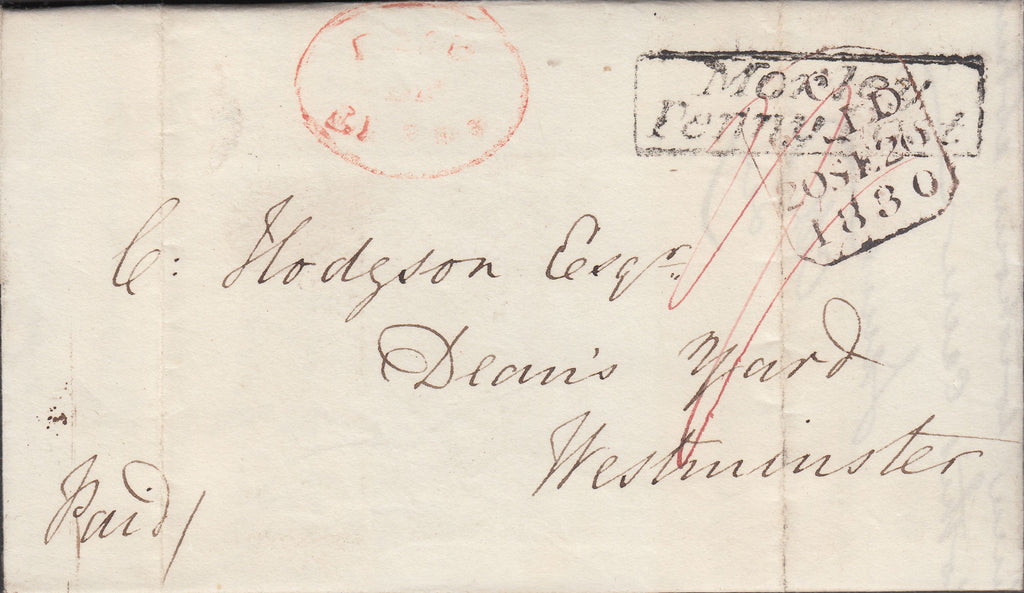 Morley
Penny Post
PAID
20SE20
1830
C: Hodgson Esqr.
Dean's Yard
Westminster
Paid/